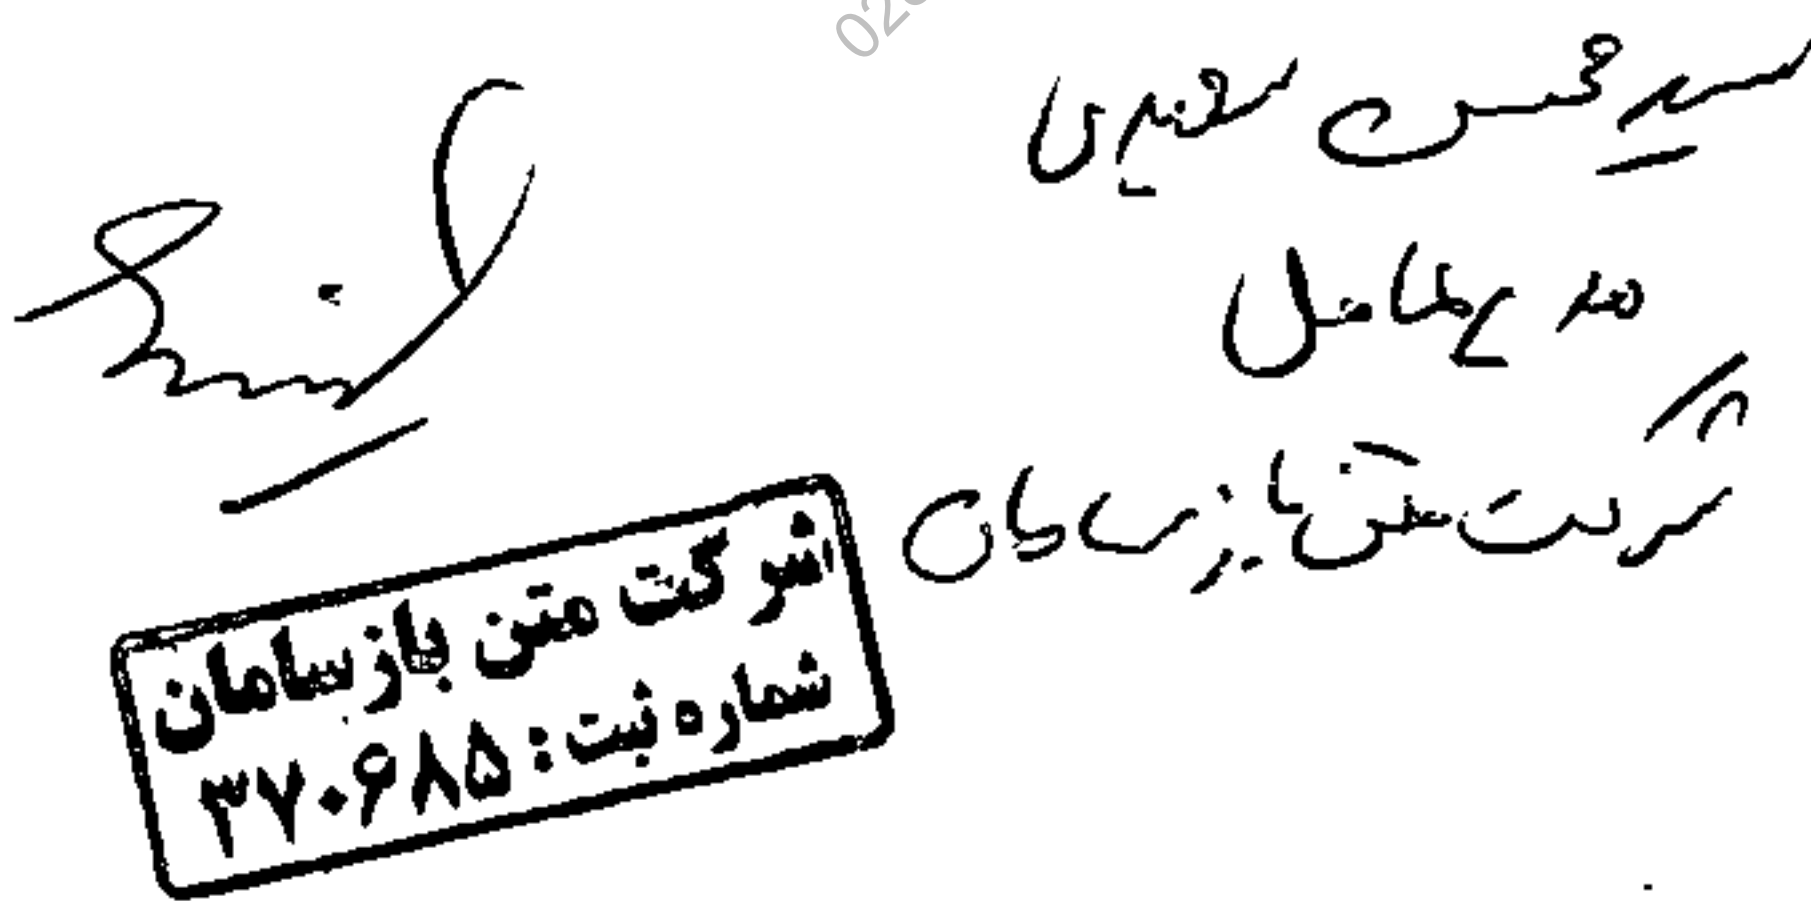 سید محسن سعیدی
مدیر عامل
شرکت متن باز سامان
شرکت متن باز سامان
شماره ثبت: ۳۷۰۶۸۵